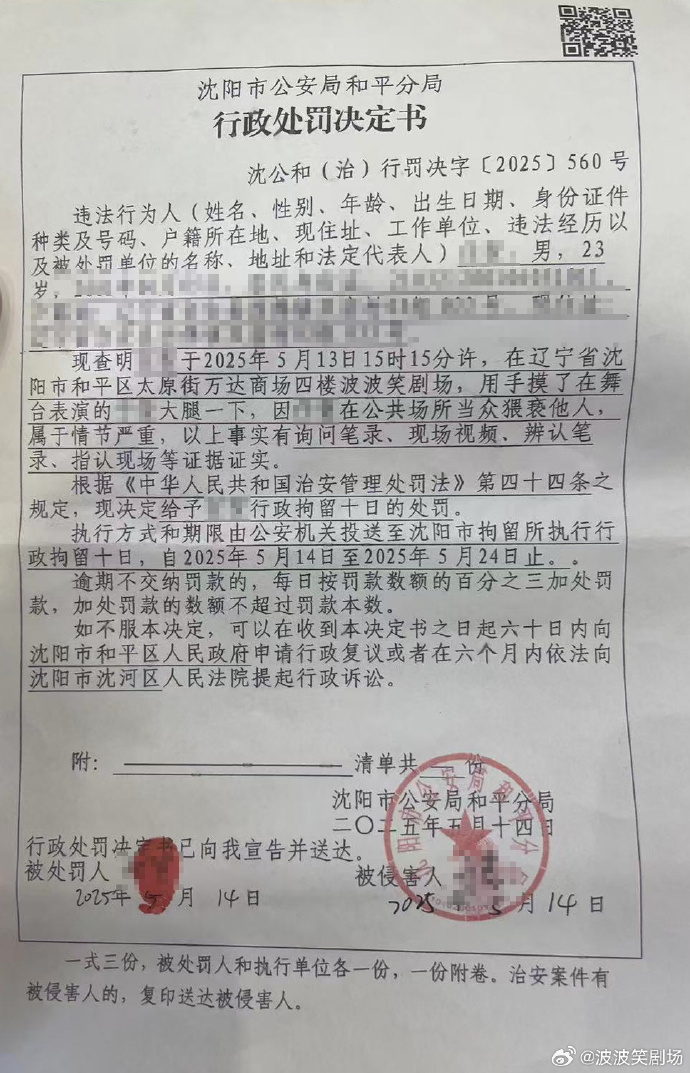 沈阳市公安局和平分局
行政处罚决定书
沈公和（治）行罚决字〔2025〕560号
违法行为人（姓名、性别、年龄、出生日期、身份证件
种类及号码、户籍所在地、现住址、工作单位、违法经历以
及被处罚单位的名称、地址和法定代表人）男，23
岁，
现查明于2025年5月13日15时15分许，在辽宁省沈
阳市和平区太原街万达商场四楼波波笑剧场，用手摸了在舞
台表演的大腿一下，因在公共场所当众猥亵他人，
属于情节严重，以上事实有询问笔录、现场视频、辨认笔
录、指认现场等证据证实。
根据《中华人民共和国治安管理处罚法》第四十四条之
规定，现决定给予行政拘留十日的处罚。
执行方式和期限由公安机关投送至沈阳市拘留所执行行
政拘留十日，自2025年5月14日至2025年5月24日止。。
逾期不交纳罚款的，每日按罚款数额的百分之三加处罚
款，加处罚款的数额不超过罚款本数。
如不服本决定，可以在收到本决定书之日起六十日内向
沈阳市和平区人民政府申请行政复议或者在六个月内依法向
沈阳市沈河区人民法院提起行政诉讼。
附：清单共 份
沈阳市公安局和平分局
二〇二五年五月十四日
行政处罚决定书已向我宣告并送达。
被处罚人 被侵害人
2025年5月14日 2025年5月14日
一式三份，被处罚人和执行单位各一份，一份附卷。治安案件有
被侵害人的，复印送达被侵害人。
@波波笑剧场